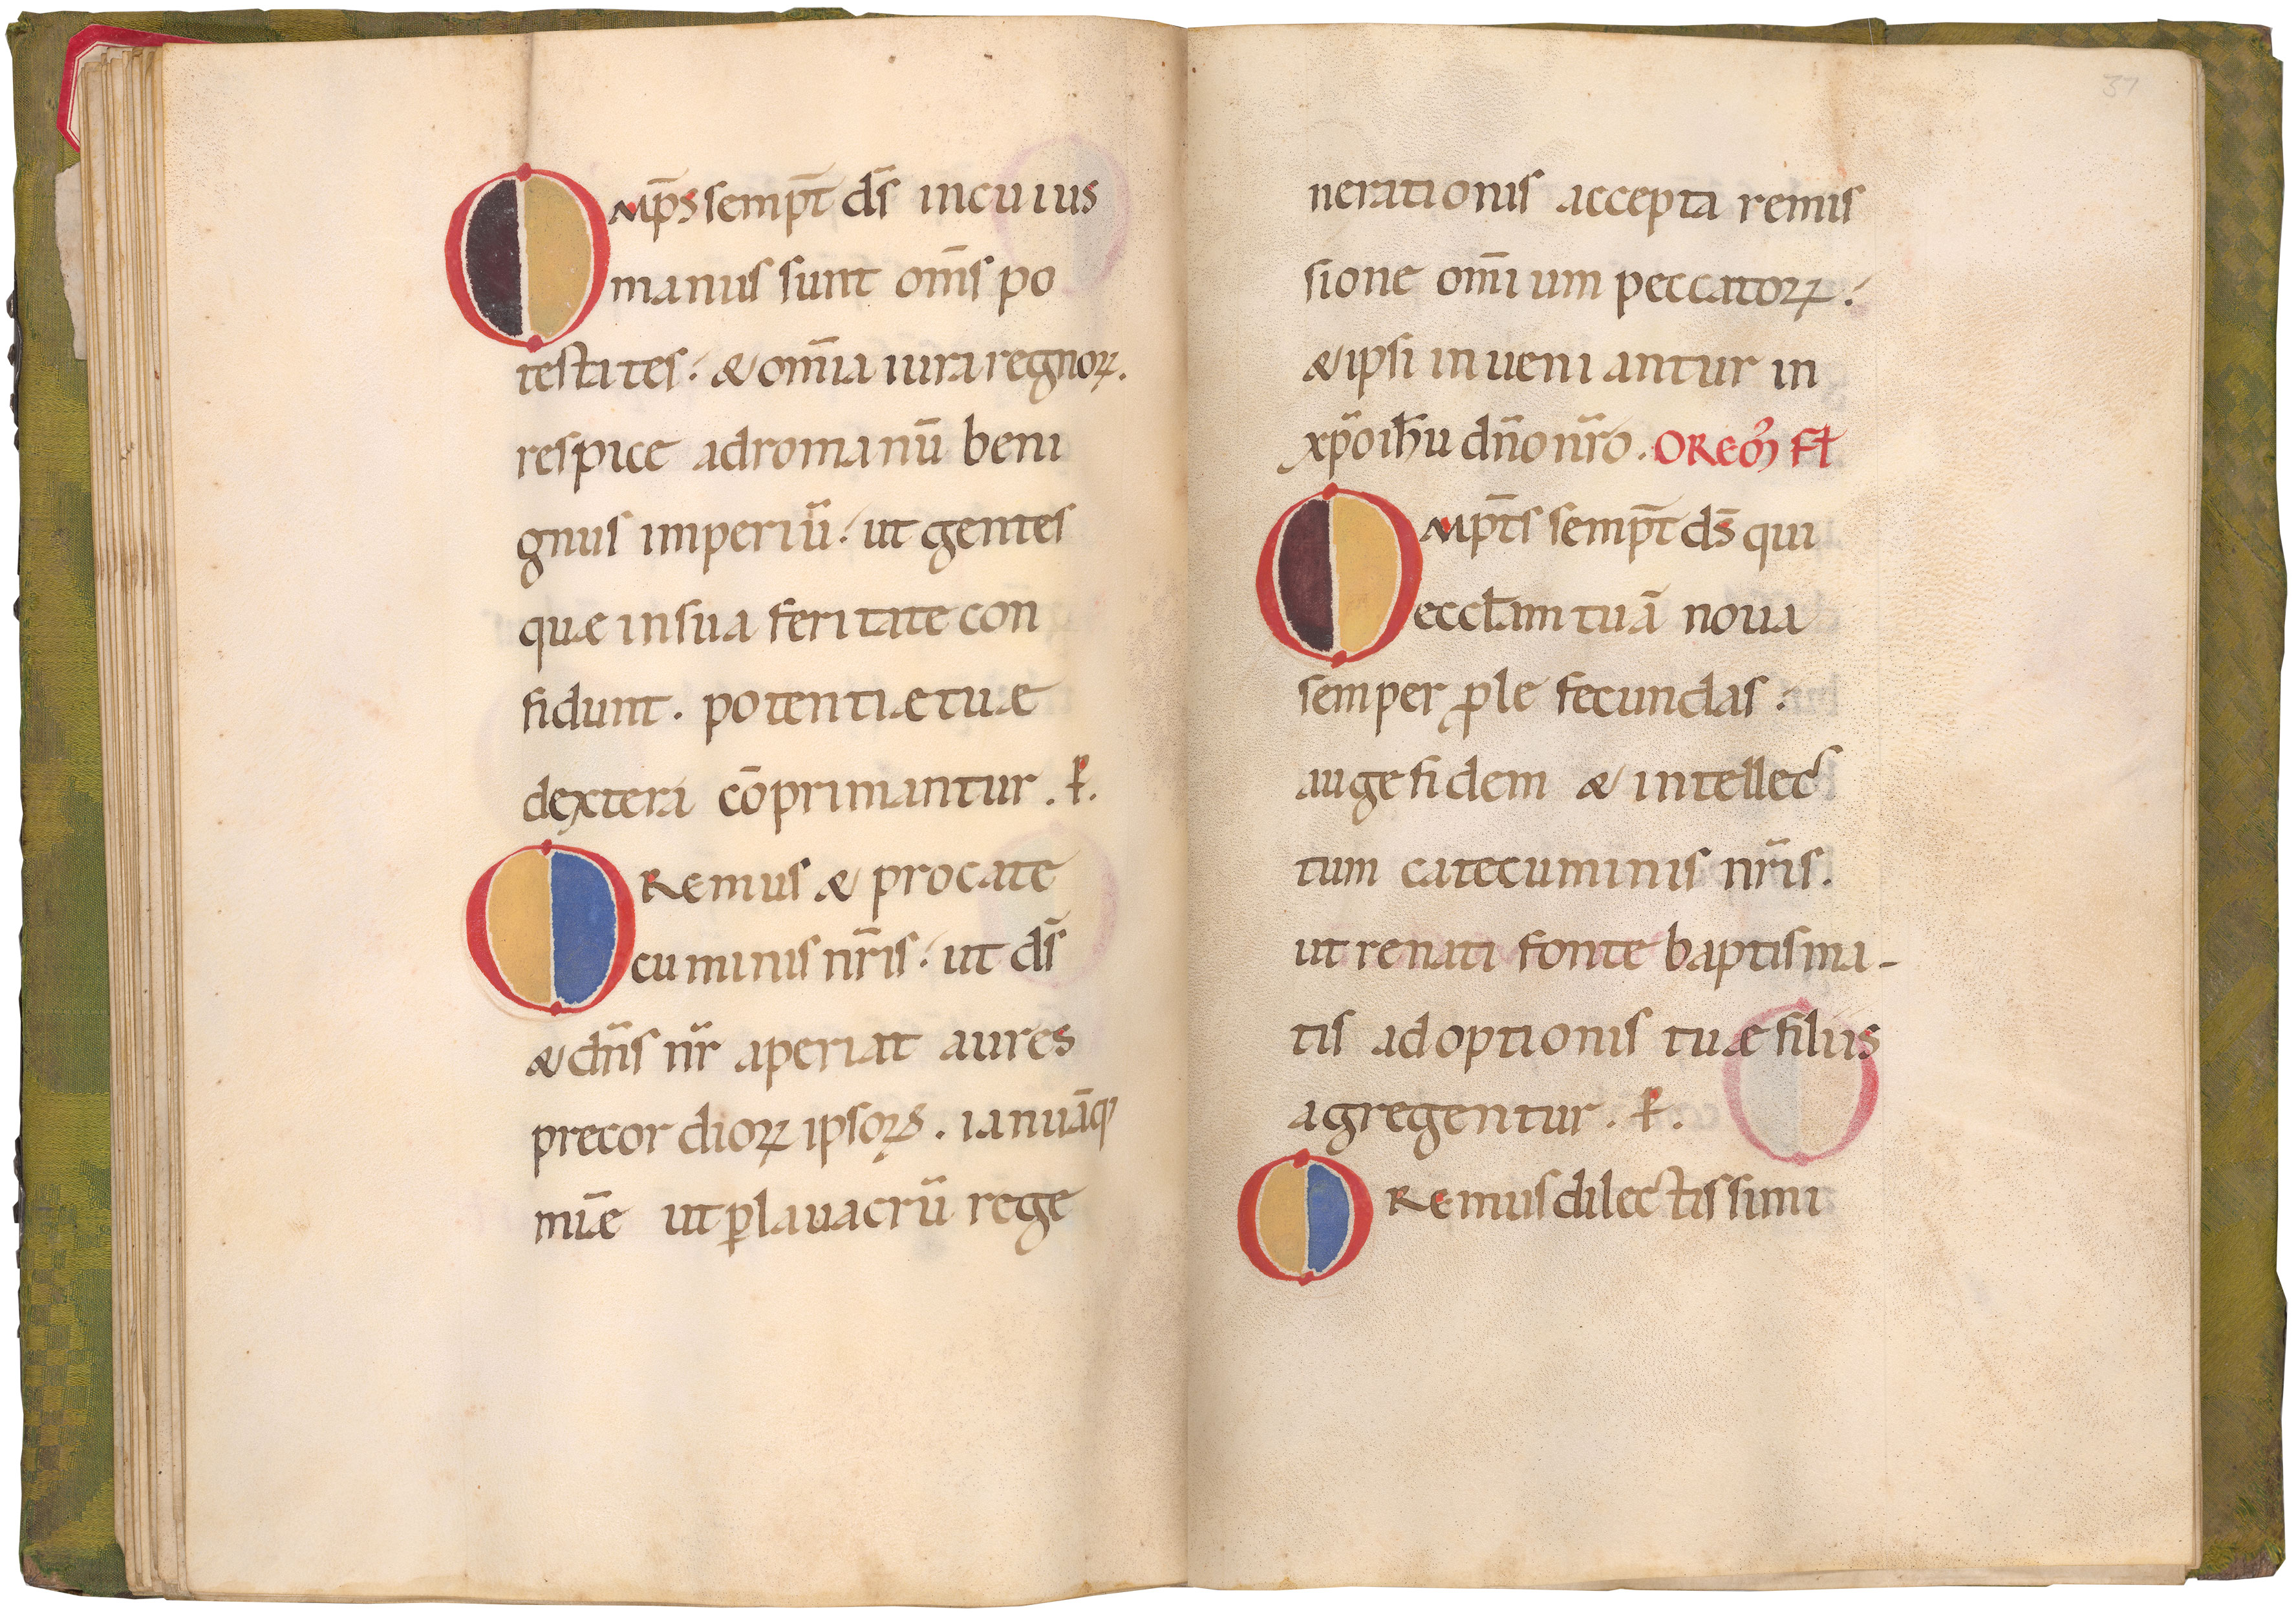 Omp̄s semp̄t ds̄ in cuius
manus sunt om̄s po
testates· & om̄ia iura regnoꝝ.
respice ad romanū beni
gnus imperiū· ut gentes
quæ in sua feritate con
fidunt. potentiæ tuæ
dextera cōprimantur. ꝶ.
Oremus & pro cate
cuminis nr̄is· ut ds̄
& dn̄s nr̄ aperiat aures
precordioꝝ ipsoꝝ. ianuāq;
mīæ ut ꝑ lauacrū rege
37
nerationis accepta remis
sione om̄ium peccatoꝝ·
& ipsi inueniantur in
xp̄o ih̄u dn̄o nr̄o. OREM̄ Fł
Omp̄ts semp̄t ds̄ qui
eccłam tuā noua
semper ꝓle fecundas·
auge fidem & intellec
tum catecuminis nr̄is.
ut renati fonte baptisma-
tis adoptionis tuæ filiis
agregentur. ꝶ.
Oremus dilectissimi